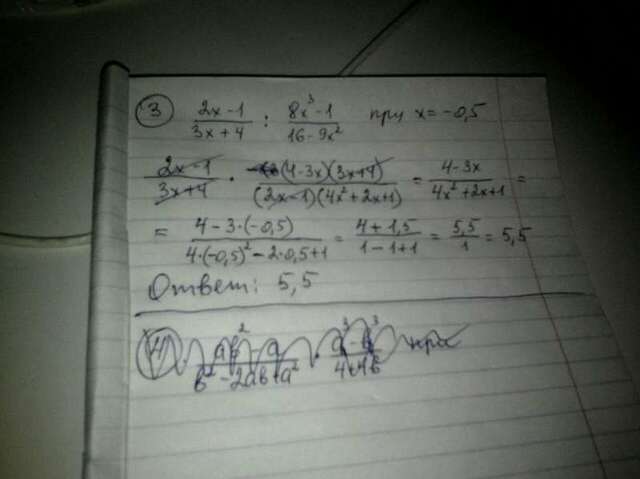 3 (2x-1)/(3x+4) : (8x³-1)/(16-9x²) при x=-0,5
(2x-1)/(3x+4) · (4-3x)(3x+4)/((2x-1)(4x²+2x+1)) = (4-3x)/(4x²+2x+1) =
= (4-3·(-0,5))/(4·(-0,5)²-2·0,5+1) = (4+1,5)/(1-1+1) = 5,5/1 = 5,5
Ответ: 5,5